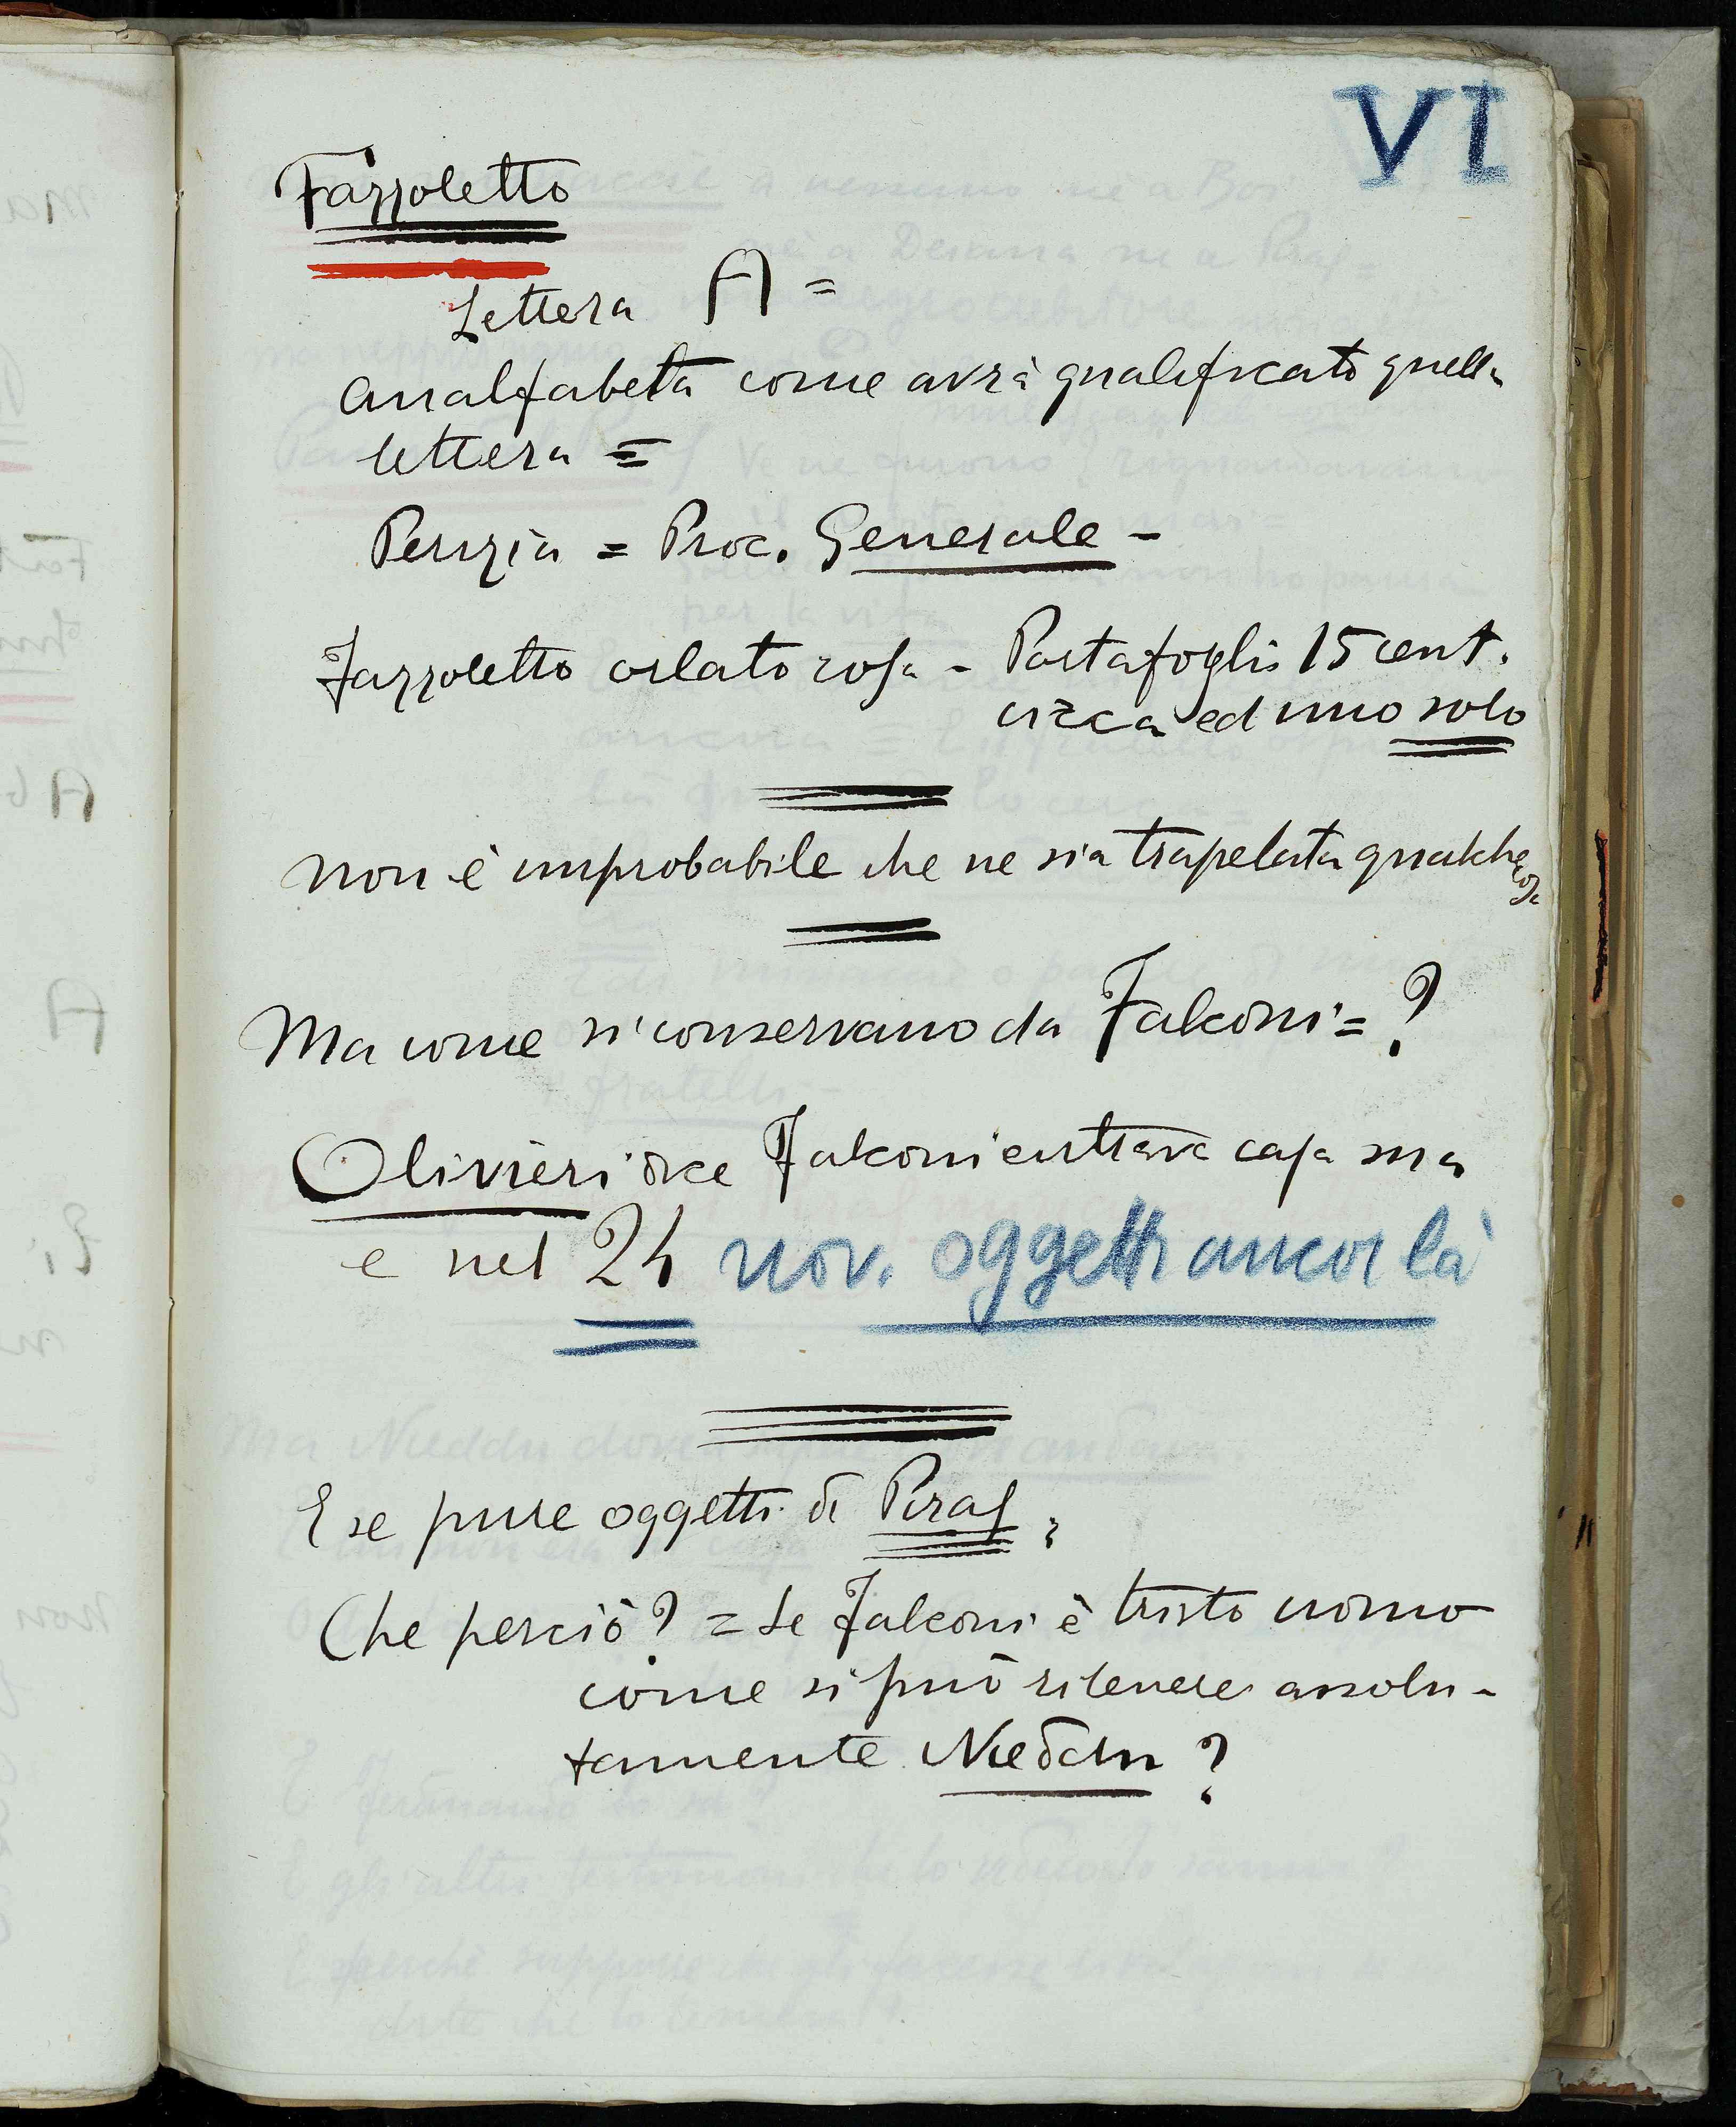 VI
Fazzoletto
Lettera A =
analfabeta come avrà qualificato quella
lettera =
Perizia = Proc. Generale -
Fazzoletto orlato rosa - Portafoglio 15 cent.
circa ed uno solo
Non è improbabile che ne sia trapelata qualche cosa
Ma come si conservano da Falconi = ?
Olivieri dice Falconi entrava casa sua
e nel 24 nov. oggetti ancor là
E se pure oggetti di Piras ?
Che perciò ? = Se Falconi è tristo uomo
come si può ritenere assolu-
tamente Nieddu ?